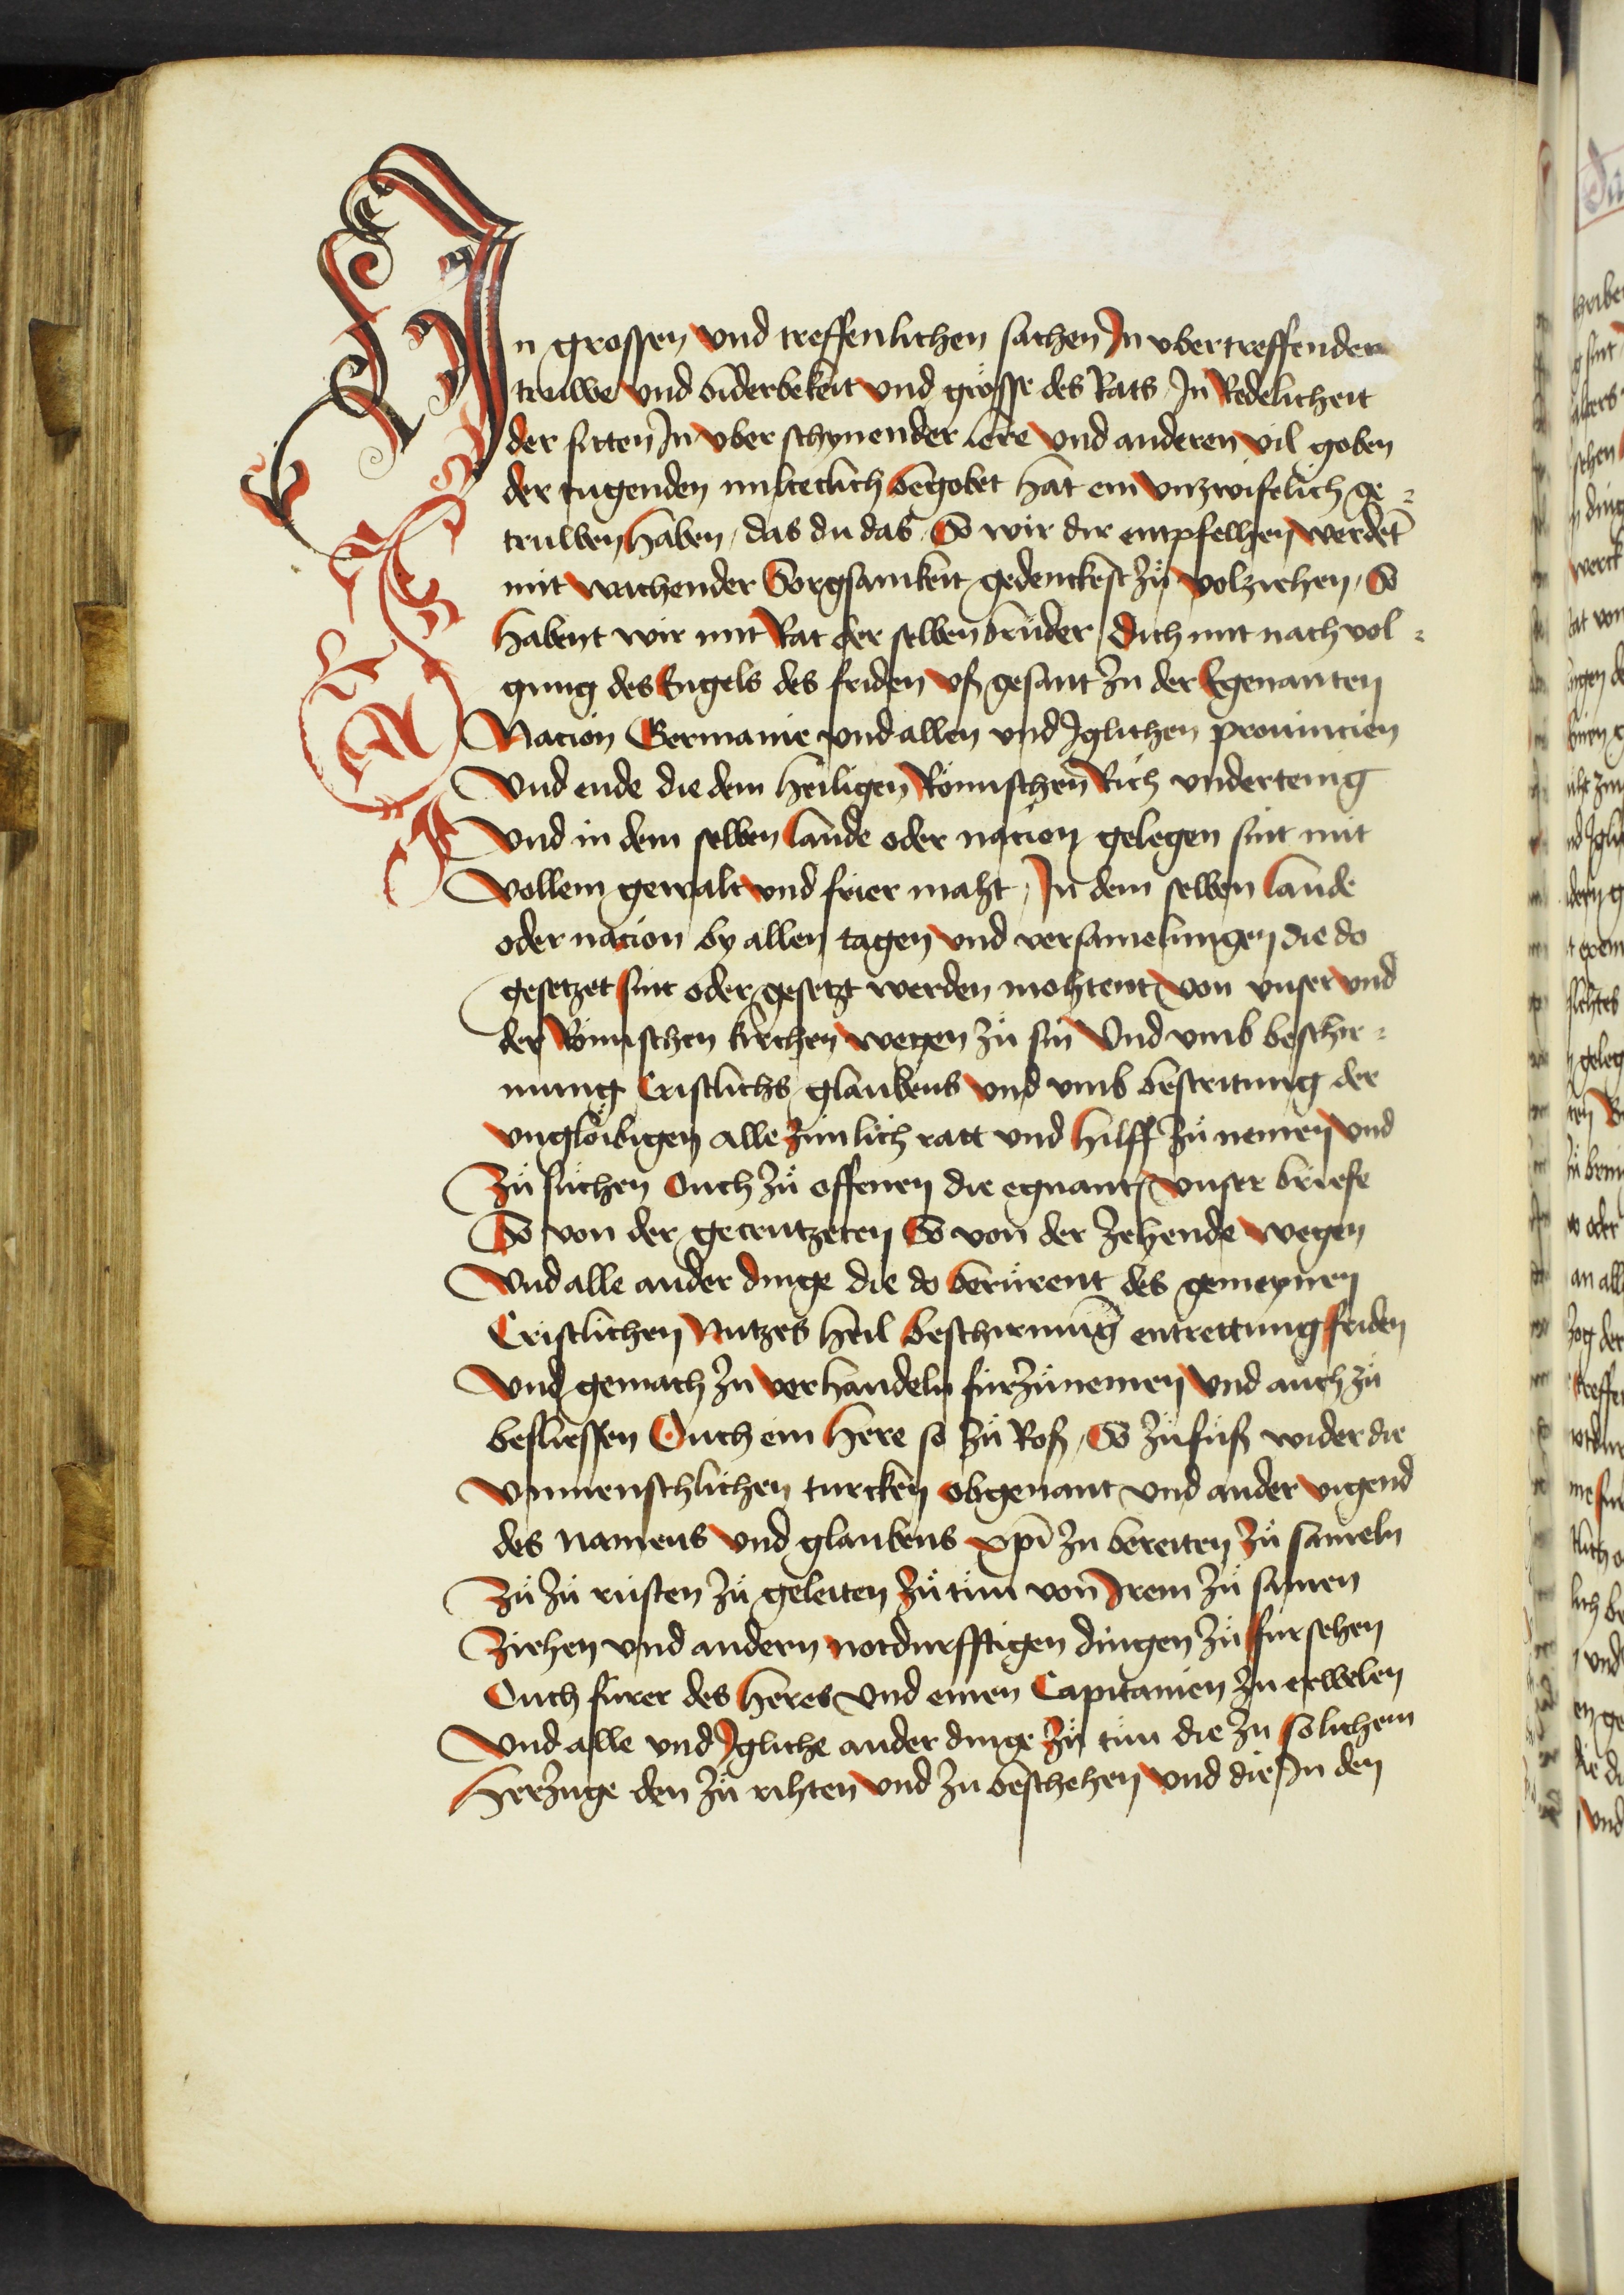 In grossen vnd treffenlichen sachen In vbertreffender
truwe vnd biderbekeit vnd grösse des Rats In Redelicheit
der sitten In vber schynender lere vnd anderen vil goben
der tugenden milteclich begobet hat ein vnzwifelich ge⸗
truwen haben / das du das So wir dir entpfelhen werdēt
mit wachender Sorgsamkeit gedenckest zů volziehen / So
habent wir mit Rat der selben brůder dich mit nach vol⸗
gung des Engels des friden vß gesant zu der Egenanten
Nacion Germanie vnd allen vnd Iglichen prouincien
Vnd ende die dem heiligen Römischen Rich vndertenig
Vnd in dem selben lande oder nacion gelegen sint mit
Vollem gewalt vnd frier maht / In dem selben lande
oder nacion by allen tagen vnd versamelungen die do
gesetzet sint oder gesetzt werden mohtent von vnser vnd
der Römischen kirchen wegen zů sin Vnd vmb beschir⸗
mung Cristlichs glaubens vnd vmb bestritung der
vnglöibigen alle zimlich ratt vnd hilff zů nemen vnd
Zů sůchen Ouch zů offenen die egnant vnser briefe
So von der gecrutzeten So von der zehende wegen
Vnd alle ander dinge die do berürent des gemeynen
Cristlichen Nutzes heil beschirmūg entrettung friden
Vnd gemach zu verhandeln fürzůnemen vnd auch zů
besliessen Ouch ein here so zů Roß / So zů fůß wider die
vnmenschlichen turcken obgenant vnd ander vigend
des namens vnd glaubens xp̄i zu bereiten zů sameln
Zů zů rüsten zů geleiten zů tůn von Irem zů samen
Ziehen vnd andern notdurfftigen dingen zů fürsehen
Ouch fürer des heres vnd einen Capitanien zu erwelen
Vnd alle vnd Igliche ander dinge zů tůn die zu solichem
herzuge den zů rihten vnd zu beschehen vnd die In den